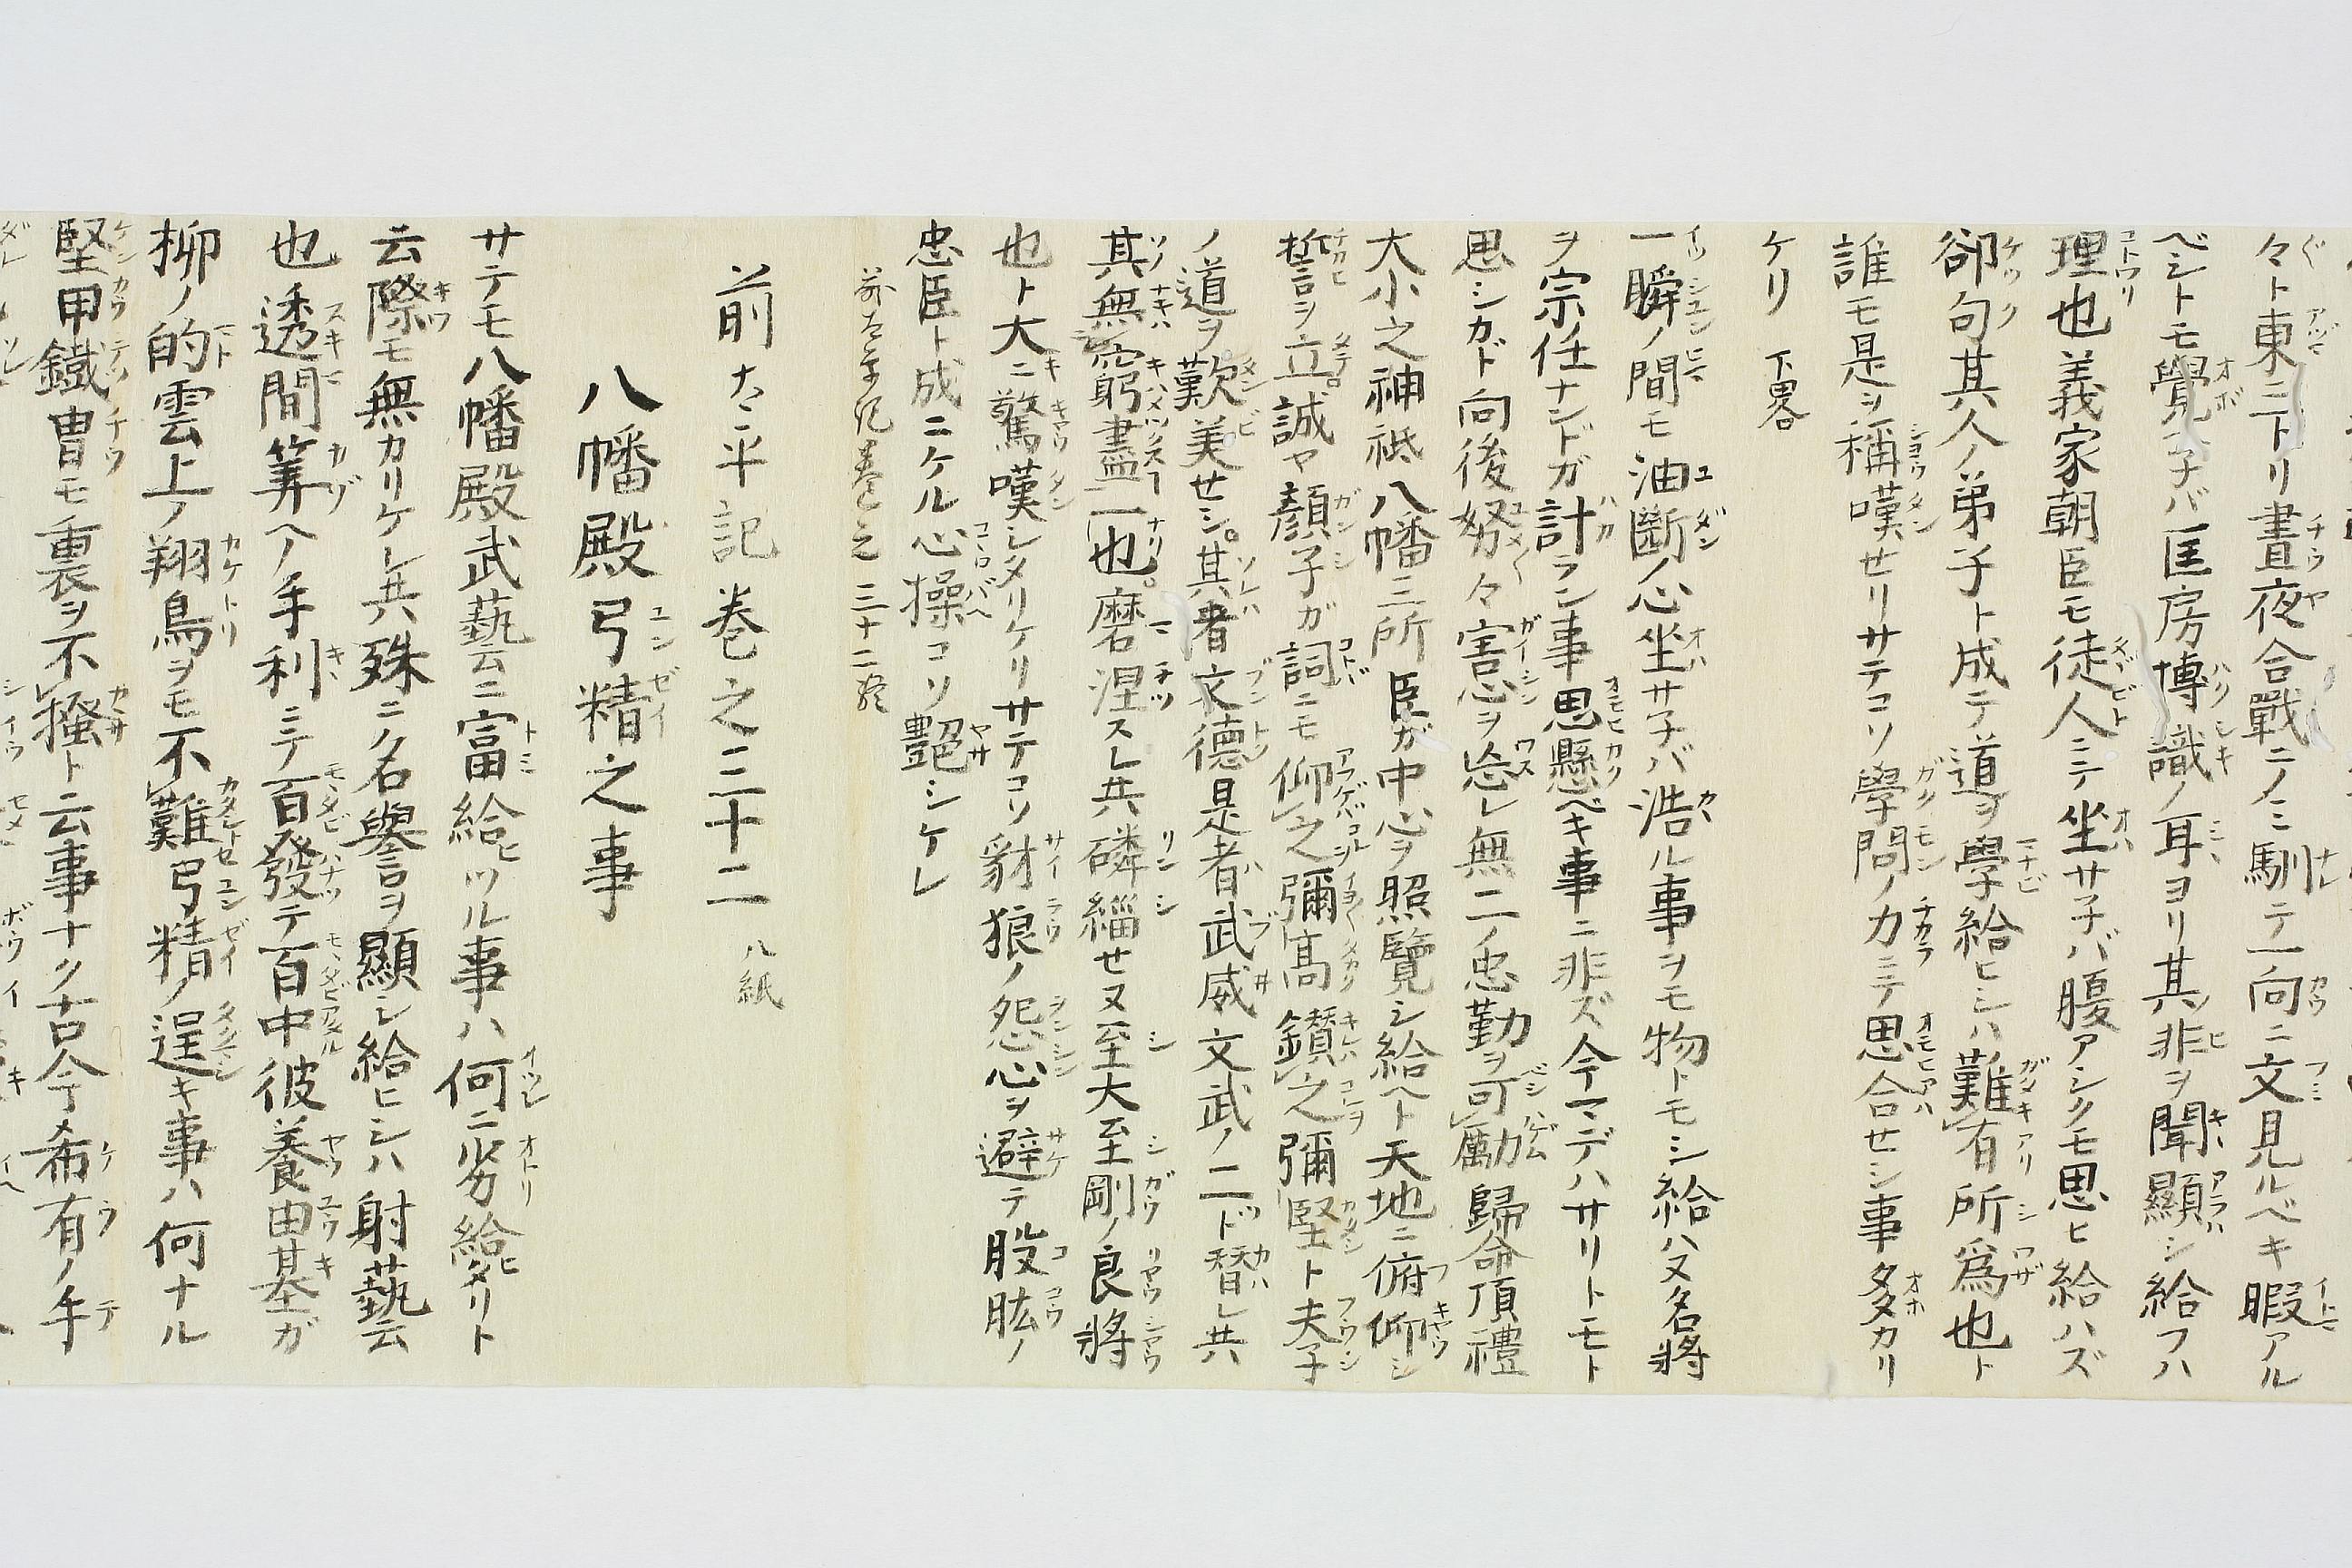 々ト東ニ下リ晝夜合戰ニノミ馴テ一向ニ文見ルベキ暇アル
ベシトモ覺子バ匡房博識ノ耳ヨリ其非ヲ聞顯シ給フハ
理也義家朝臣モ徒人ニテ坐サ子バ腹アシクモ思ヒ給ハズ
郤句其人ノ弟子ト成テ道ヲ學給ヒシハ難有所爲也ト
誰モ是ヲ稱嘆せリサテコソ學問ノ力ニテ思合せシ事多カリ
ケリ 下畧
一瞬ノ間モ油斷ノ心坐サ子バ浩ル事ヲモ物トモシ給ハヌ名將
ヲ宗任ナンドガ計ラン事思懸ベキ事ニ非ズ今マデハサリトモト
思シカド向後努々害心ヲ忘レ無二ノ忠勤ヲ可勵歸命頂禮
大小之神祗八幡三所臣ガ中心ヲ照覽シ給ヘト天地ニ俯仰シ
誓言ヲ立。誠ヤ顔子ガ詞ニモ仰之彌髙鑚之彌堅ト夫子
ノ道ヲ歎美せシ。其者文德是者武威文武ノ二ツド替レ共
其無窮盡一也。磨涅スレ共磷緇せヌ至大至剛ノ良將
也ト大ニ驚嘆シタリケリサテコソ豺狼ノ怨心ヲ避テ股肱ノ
忠臣ト成ニケル心操コソ艶シケレ
前太平記巻之三十二終
前太平記巻之三十二 八紙
八幡殿弓精之事
サテモ八幡殿武藝ニ富給ヒツル事ハ何ニ劣給ヒタリト
云際モ無カリケレ共殊ニ名譽ヲ顯シ給ヒシハ射藝
也透間筭ヘノ手利ニテ百發テ百中彼養由基ガ
柳ノ的雲上ノ翔鳥ヲモ不難弓精ノ逞キ事ハ何ナル
堅甲鐵冑モ裏ヲ不掻ト云事ナク古今希有ノ手